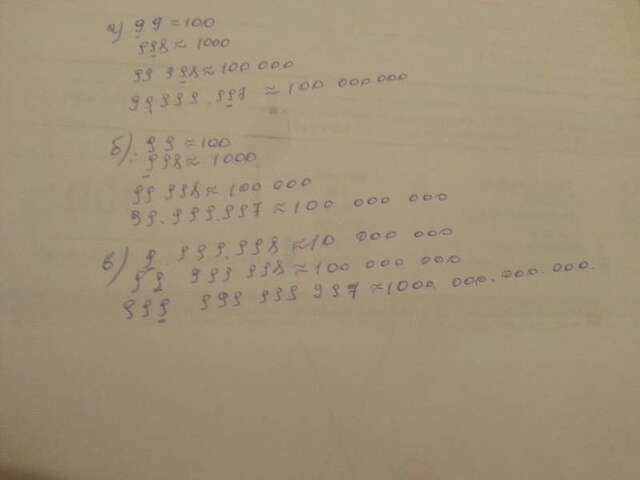 а) 99 ≈ 100
998 ≈ 1000
99 998 ≈ 100 000
99 999 997 ≈ 100 000 000
б). 99 ≈ 100
998 ≈ 1000
99 998 ≈ 100 000
99.999.997 ≈ 100 000 000
в) 9. 999.998 ≈ 10 000 000
99 999 998 ≈ 100 000 000
999 999 999 997 ≈ 1000 000.000.000.